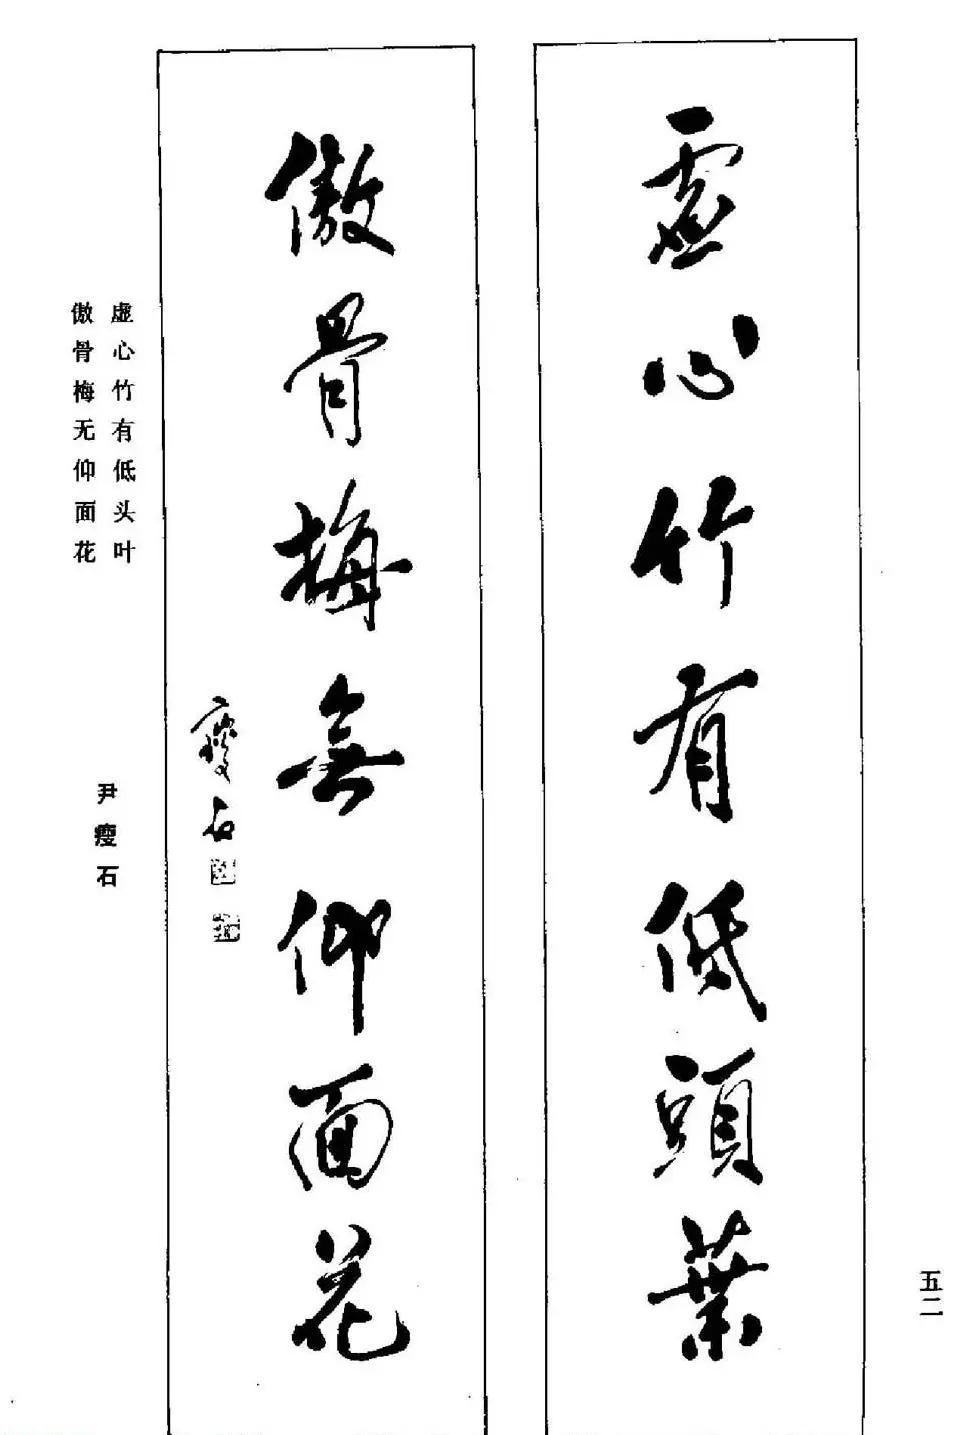 虚心竹有低頭葉
傲骨梅無仰面花
瘦石
虚心竹有低头叶
傲骨梅无仰面花
尹瘦石
五二